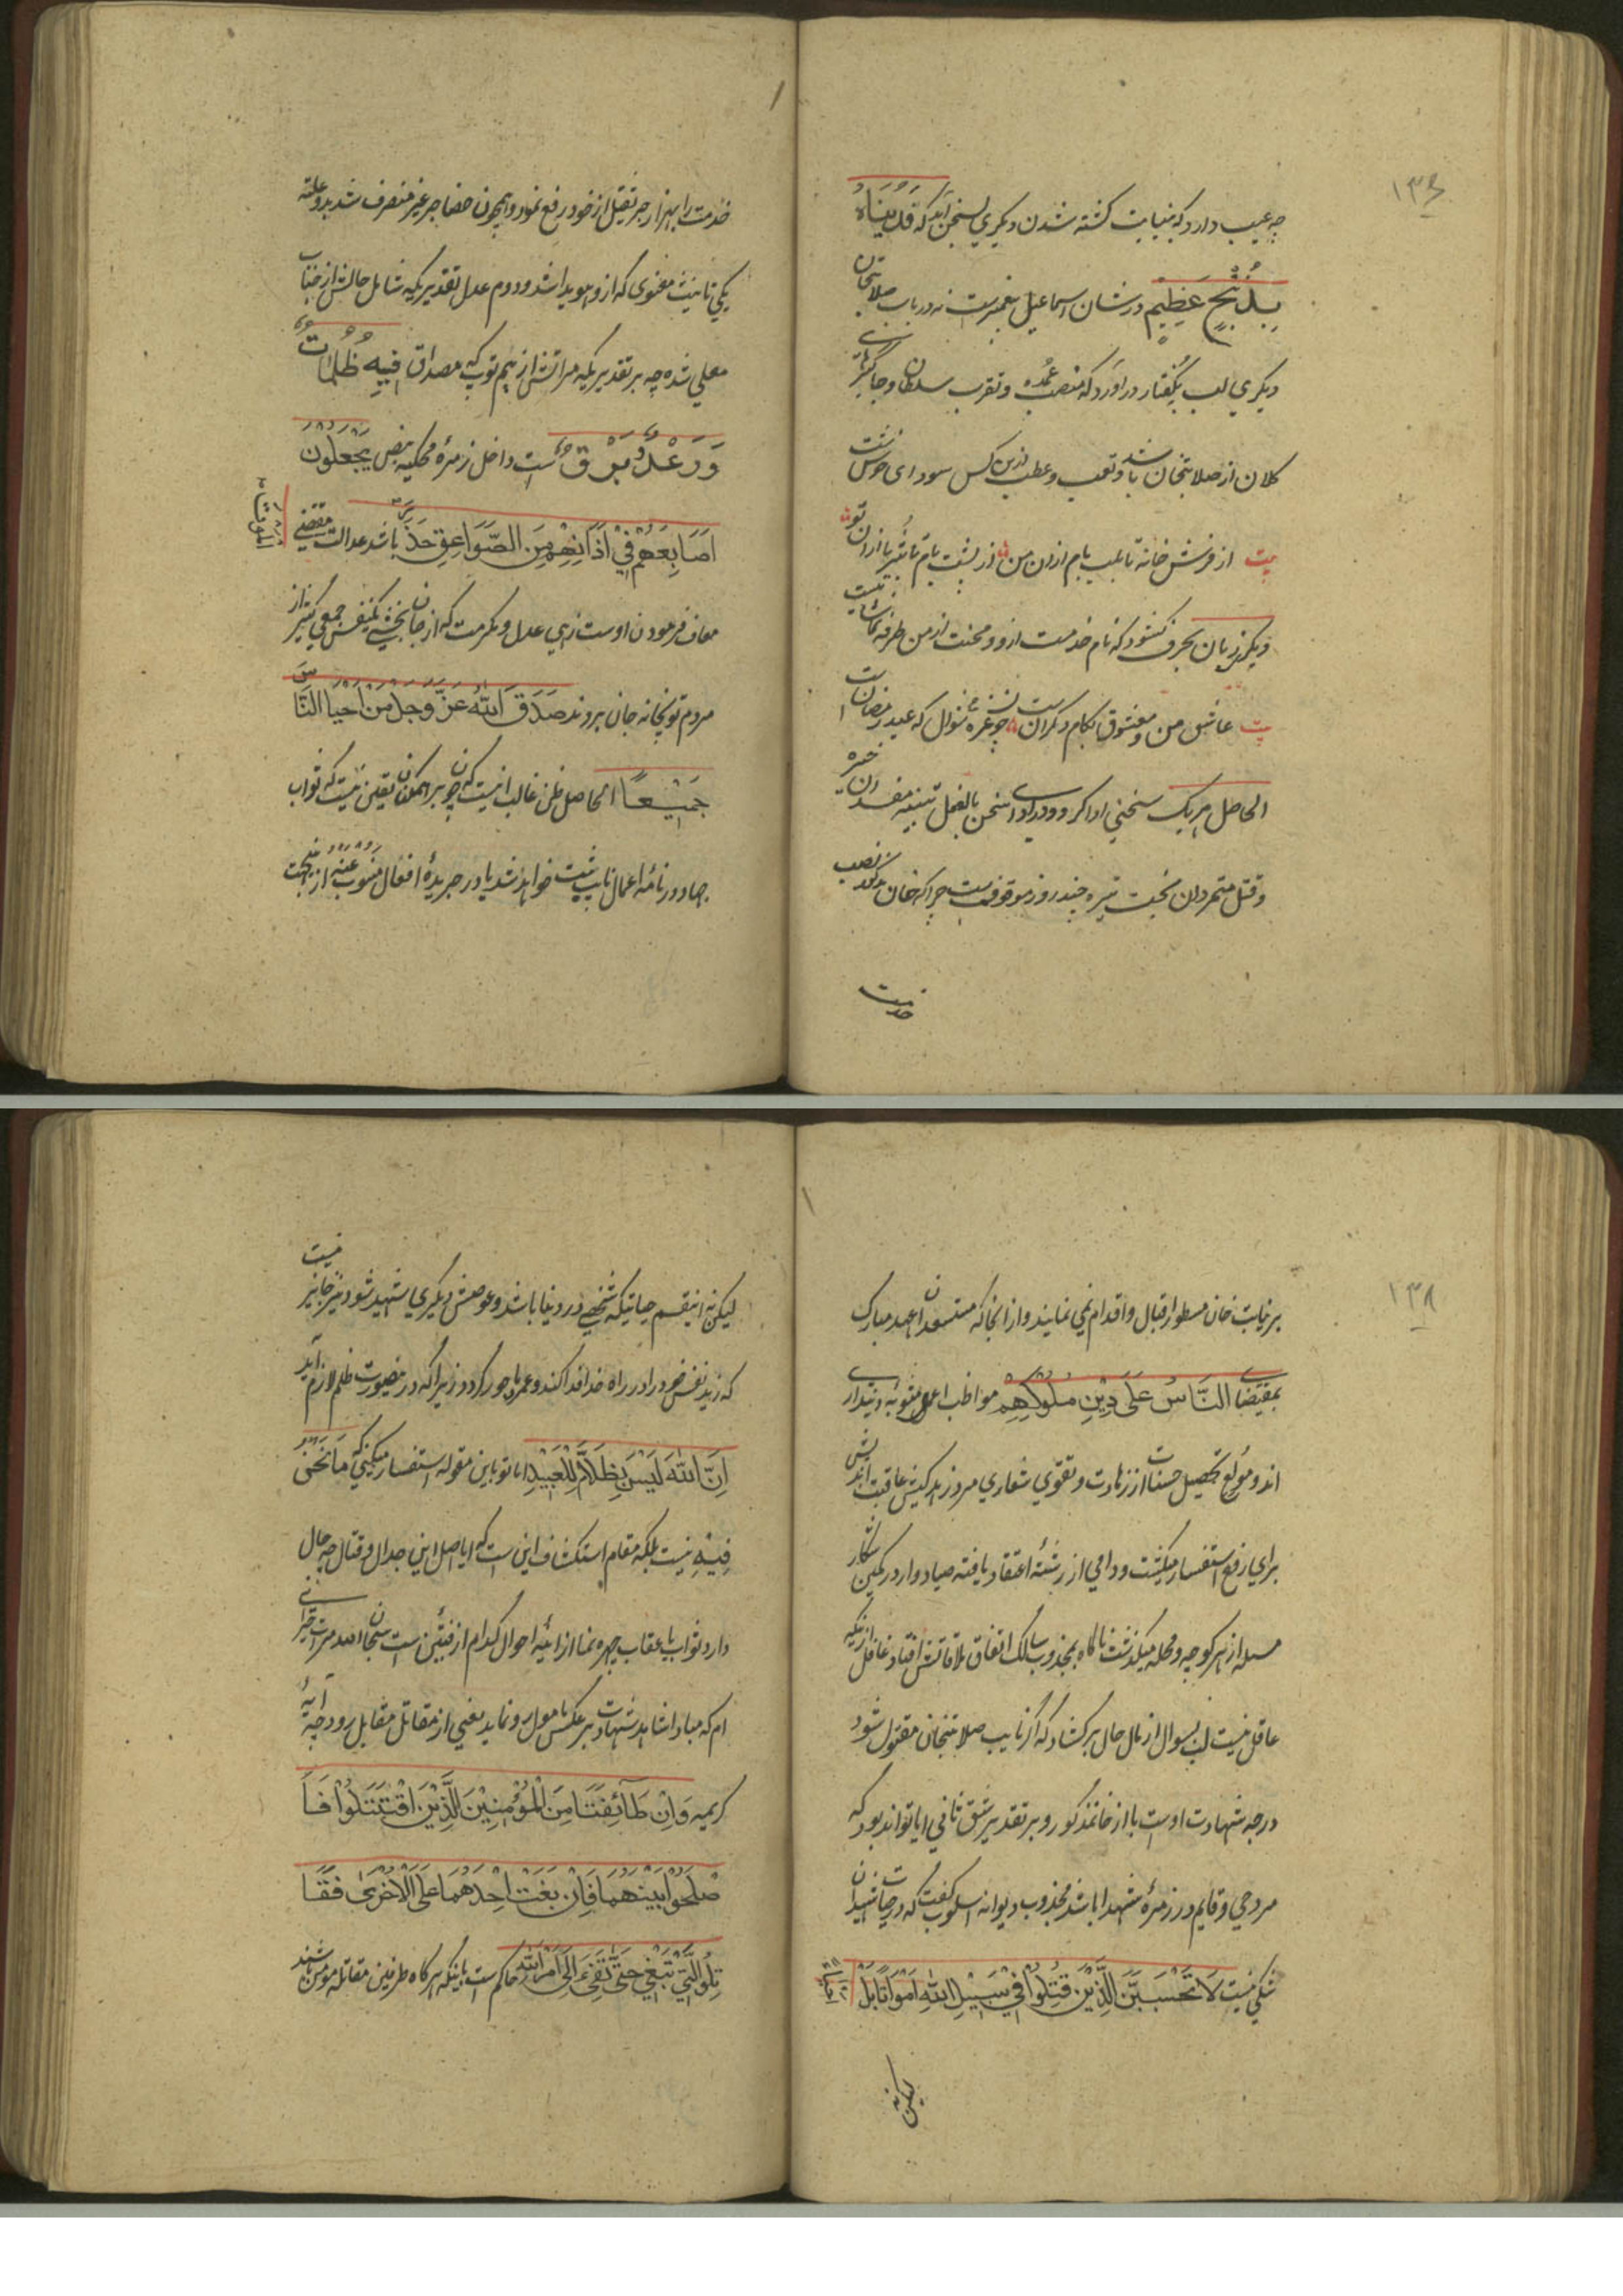 ۱۳۶
چه عیب دارد که بنیابت کشته شدن دیگری لسخن آید که فدیناه
بذبح عظیم در شان اسماعیل پیغمبرست نه در باب صلابتخان
دیگری لب بگفتار در آورد که منصب عمده و تقرب سلطان و جاگیر
کلان از صلابتخان باشد و تعب و عطب ازین کس سودای خوش است
بیت از فرش خانه تا بلب بام ازان من از پشت بام تا بثریا ازان تو
دیگری زبان بحرف کشود که نام خدمت ازو و محنت از من طرفه تماشاییست
بیت عاشق من و معشوق بکام دگران است چو غره شوال که عید رمضان است
الحاصل هر یک سخنی ادا کرد و درادای سخن بالفعل تنبیه مفسدان خیره
و قتل متمردان بخت تیره چند روز موقوفست چرا که خان مذکور نصب
خدمت
خدمت را بهزار جر ثقیل از خود رفع نمود و همچون حضاجر غیر منصرف شد بدو علت
یکی تانیث معنوی که ازو هویدا شد و دوم عدل تقدیر یکه شامل حالش از جناب
معلی شده چه بر تقدیر یکه مراتش از بیم توپ که مصداق فیه ظلمات
ورعد وبرق است داخل زمره محکیه بنص یجعلون
اصابعهم فی اذانهم من الصواعق حذر الموت باشد عدالت مقتضی
معاف فرمودن اوست زهی عدل و مکرمت که از جان بخشی یکنفس جمعی کثیر از
مردم توپخانه جان بردند صدق الله عز وجل من احیا الناس
جمیعا الحاصل ظن غالب اینست که چون بر همگنان یقین نیست که ثواب
جهاد در نامه اعمال نایب ثبت خواهد شد یا در جریده افعال منوب عنه ازینجهت
۱۳۸
بر نیابت خان مسطور اقبال و اقدام نمی نمایند و از انجا که مستسعدان عهد مبارک
بمقتضای الناس علی دین ملوکهم مواظب اعمال مثوبه و دینداری
اند و مولع تحصیل حسنات از زهادت و تقوی شعاری مرد زاهد کیش عاقبت اندیش
برای رفع استفسار میگشت و دامی از رشته اعتقاد بافته صیاد وار در کمین شکار
مسله از هر کوچه و محله میگذشت ناگاه بمجذوب سالک اتفاق ملاقاتش افتاد غافل ازینکه
عاقل نیست لب بسوال از مال حال برکشاد که اگر نایب صلابتخان مقتول شود
درجه شهادت اوست یا از خان مذکور و بر تقدیر شق ثانی ایا تواند بود که
مرد حی و قایم در زمره شهدا باشد مجذوب دیوانه اسلوب گفت که در حیات شهیدان
شکی نیست لا تحسبن الذین قتلوا فی سبیل الله امواتا بل
لیکن نه
لیکن نه اینقسم حیاتیکه شخصی در دنیا باشد و عوضش دیگری شهید شود نیز جایز نیست
که زید نفس خود را در راه خدا فدا کند و عمرو ماجور گردد زیرا که در ینصورت ظلم لازم آید
ان الله لیس بظلام للعبید اما تو باین مقوله استفسار میکنی که ما نحن
فیه نیست بلکه مقام استکشاف این است که ایا اصل این جدال و قتال چه حال
دارد ثواب یا عقاب چهره نما از اینه احوال کدام از فئتین است سبحان الله مرا حیرانی
ام که مبادا شاهد شهادت بر عکس مامول رو نماید یعنی از مقاتل مقابل رود چه آیه
کریمه وان طائفتان من المؤمنین الذین اقتتلوا فا
صلحوا بینهما فان بغت احدهما علی الاخری فقا
تلوا التی تبغی حتی تفیء الی امر الله حاکم است باینکه هر گاه طرفین مقاتله مومن باشند